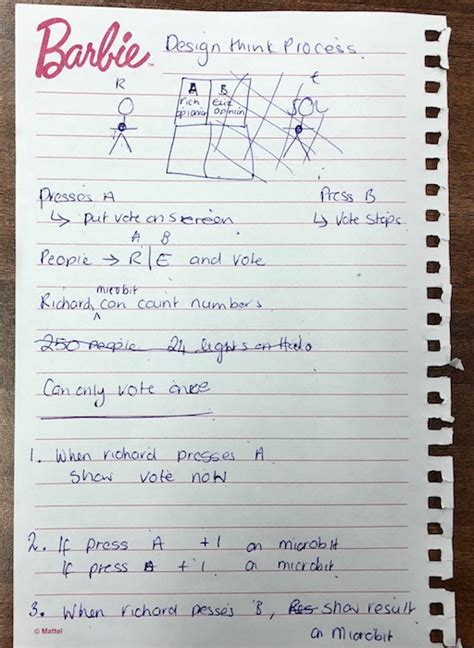 Barbie Design think Process.
R E
A B
rich Eliz
opinion opinion
Presses A Press B
↳ put vote on screen ↳ Vote Stops
A B
People → R|E and vote
microbit
Richards ^ can count numbers
250 people 24 lights on Halo
Can only vote once
1. When richard presses A
Show vote now
2. If press A +1 on microbit
If press B +1 on microbit
3. When richard presses B, Res show result
on Microbit
© Mattel